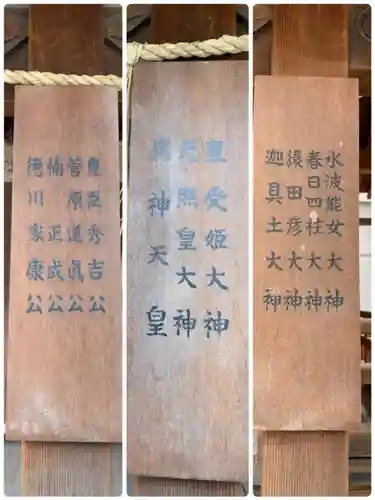 水波能女大神
春日四柱大神
猿田彦大神
迦具土大神
豊受姫大神
天照皇大神
應神天皇
豊臣秀吉公
菅原道眞公
楠正成公
徳川家康公